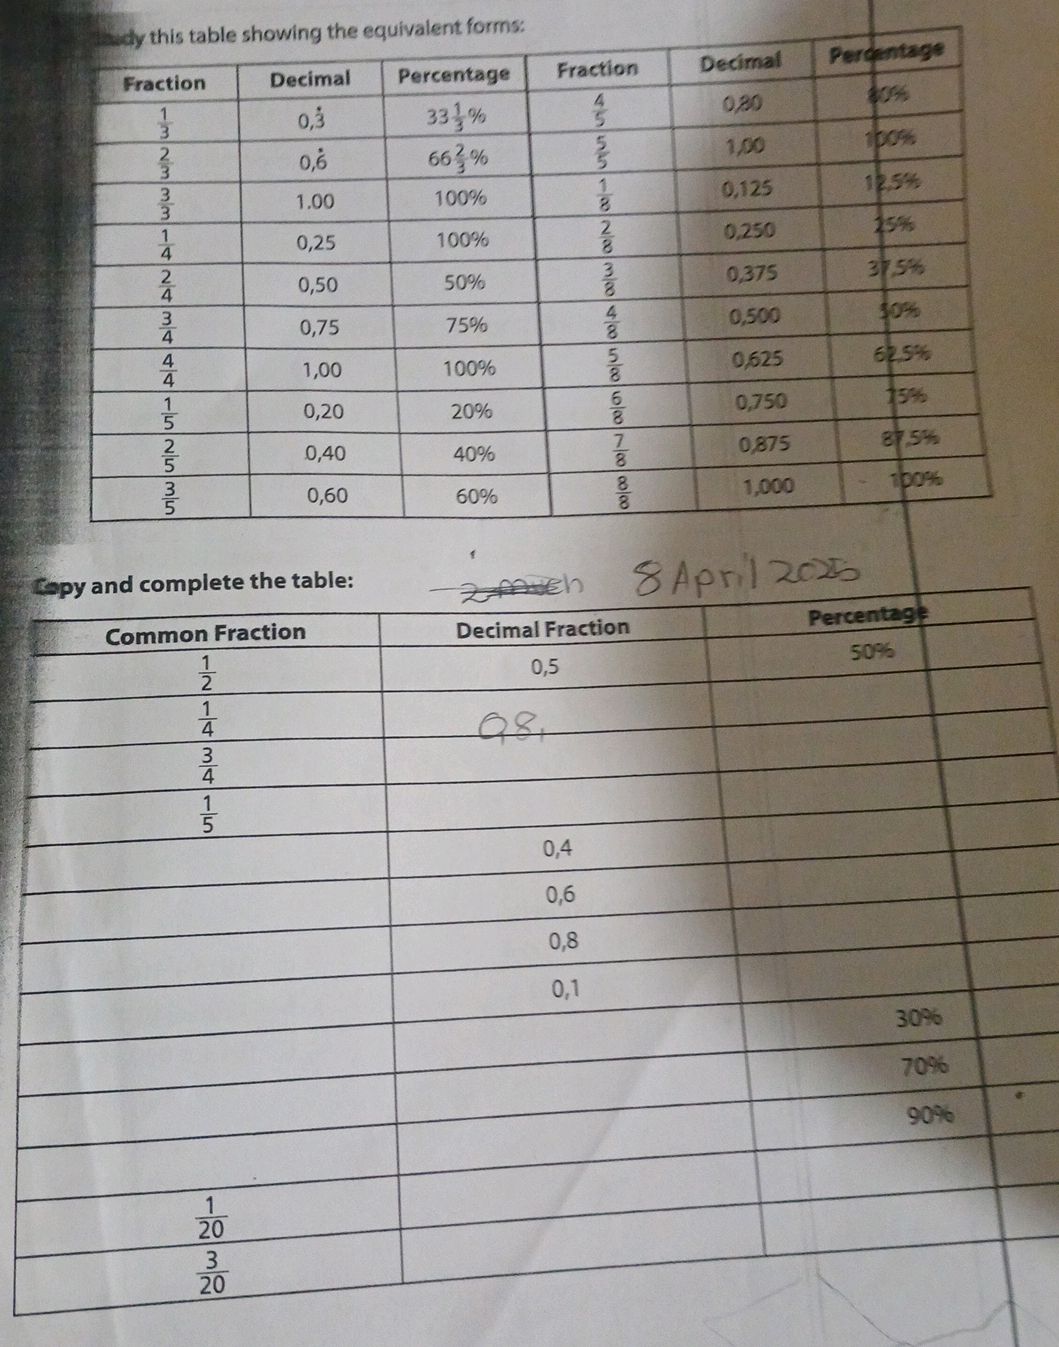 this table showing the equivalent forms:
Fraction Decimal Percentage Fraction Decimal Percentage
1/3 0,3̇ 33 1/3% 4/5 0,80 80%
2/3 0,6̇ 66 2/3% 5/5 1,00 100%
3/3 1.00 100% 1/8 0,125 12,5%
1/4 0,25 100% 2/8 0,250 25%
2/4 0,50 50% 3/8 0,375 37,5%
3/4 0,75 75% 4/8 0,500 50%
4/4 1,00 100% 5/8 0,625 62,5%
1/5 0,20 20% 6/8 0,750 75%
2/5 0,40 40% 7/8 0,875 87,5%
3/5 0,60 60% 8/8 1,000 100%
Copy and complete the table: 8 April 2025
Common Fraction Decimal Fraction Percentage
1/2 0,5 50%
1/4 0,8,
3/4
1/5
0,4
0,6
0,8
0,1
30%
70%
90%
1/20
3/20